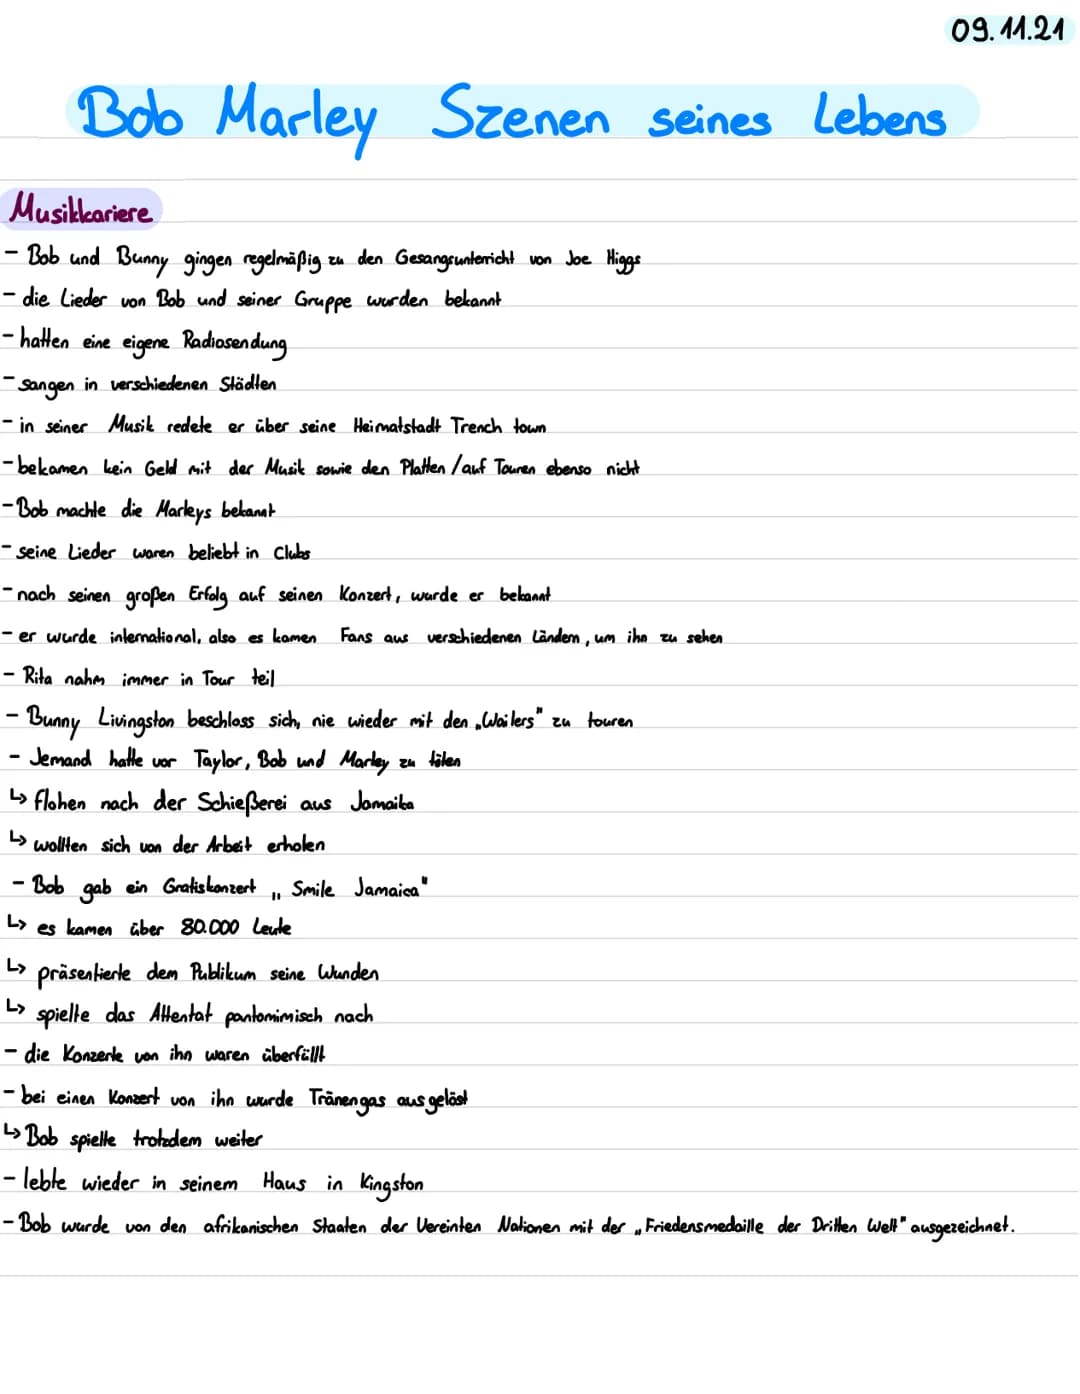 09.11.21
Bob Marley Szenen seines Lebens
Musikkariere
- Bob und Bunny gingen regelmäßig zu den Gesangsunterricht von Joe Higgs
- die Lieder von Bob und seiner Gruppe wurden bekannt
- hatten eine eigene Radiosendung
- sangen in verschiedenen Städten
- in seiner Musik redete er über seine Heimatstadt Trench town
- bekamen kein Geld mit der Musik sowie den Platten / auf Touren ebenso nicht
- Bob machte die Marleys bekannt
- seine Lieder waren beliebt in Clubs
- nach seinen großen Erfolg auf seinen Konzert, wurde er bekannt
- er wurde international, also es kamen Fans aus verschiedenen Ländern, um ihn zu sehen
- Rita nahm immer in Tour teil
- Bunny Livingston beschloss sich, nie wieder mit den „Wailers" zu touren
- Jemand hatte vor Taylor, Bob und Marley zu töten
↳ flohen nach der Schießerei aus Jamaika
↳ wollten sich von der Arbeit erholen
- Bob gab ein Gratiskonzert „ Smile Jamaica"
↳ es kamen über 80.000 Leute
↳ präsentierte dem Publikum seine Wunden
↳ spielte das Attentat pantomimisch nach
- die Konzerte von ihn waren überfüllt
- bei einen Konzert von ihn wurde Tränengas ausgelöst
↳ Bob spielte trotzdem weiter
- lebte wieder in seinem Haus in Kingston
- Bob wurde von den afrikanischen Staaten der Vereinten Nationen mit der „Friedensmedaille der Dritten Welt" ausgezeichnet.